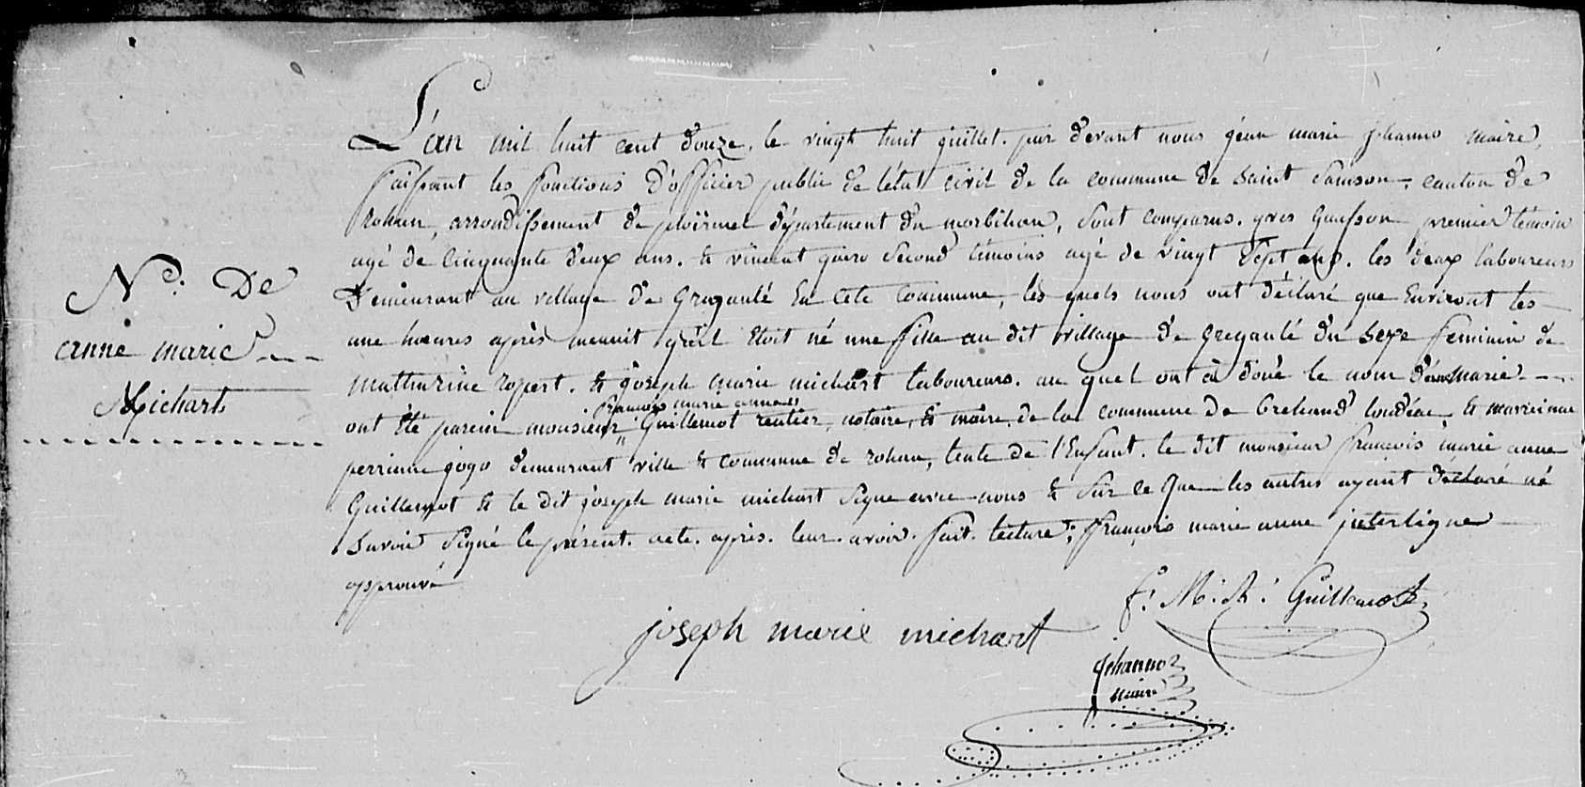 L'an mil huit cent douze, le vingt huit guillet. par devant nous géan marie Jehanno maire,
faissant les fonctions d'officier public de l'état civil de la commune de Saint Samson, canton de
rohan, arrondissement de ploërmel département du morbihan, sont comparus. yves premier témoin
agé de cinquante deux ans. & vincent second témoins agé de vingt sept ans. les deux laboureurs
Demeurant au village de Grégaulé En cete commune, les quels nous ont déclaré que Environt les
une hœures après menuit qu'il Etoit né une fille au dit village de gregaulé du sexe feminin de
Mathurine ropert. & joseph marie michart laboureurs. au quel ont à doné le nom d'anne Marie
N.ce De
anne marie
Michart
françois marie anne
ont été parein monsieur Guillemot rentier, notaire, & maire, de la commune de Brehand loudéac & mareinne
perrinne jogo demeurant ville & commune de rohan, tente de l'Enfant. le dit monsieur francois marie anne
Guillemot & le dit joseph marie michart signe avec nous & sur ce que les autres ayant déclaré né
savoir signé le présent. acte. après. leur avoir. fait. lecture; françois marie anne interligne
approuvé
f: M: A: Guillemot
joseph marie michart
Jehanno
maire